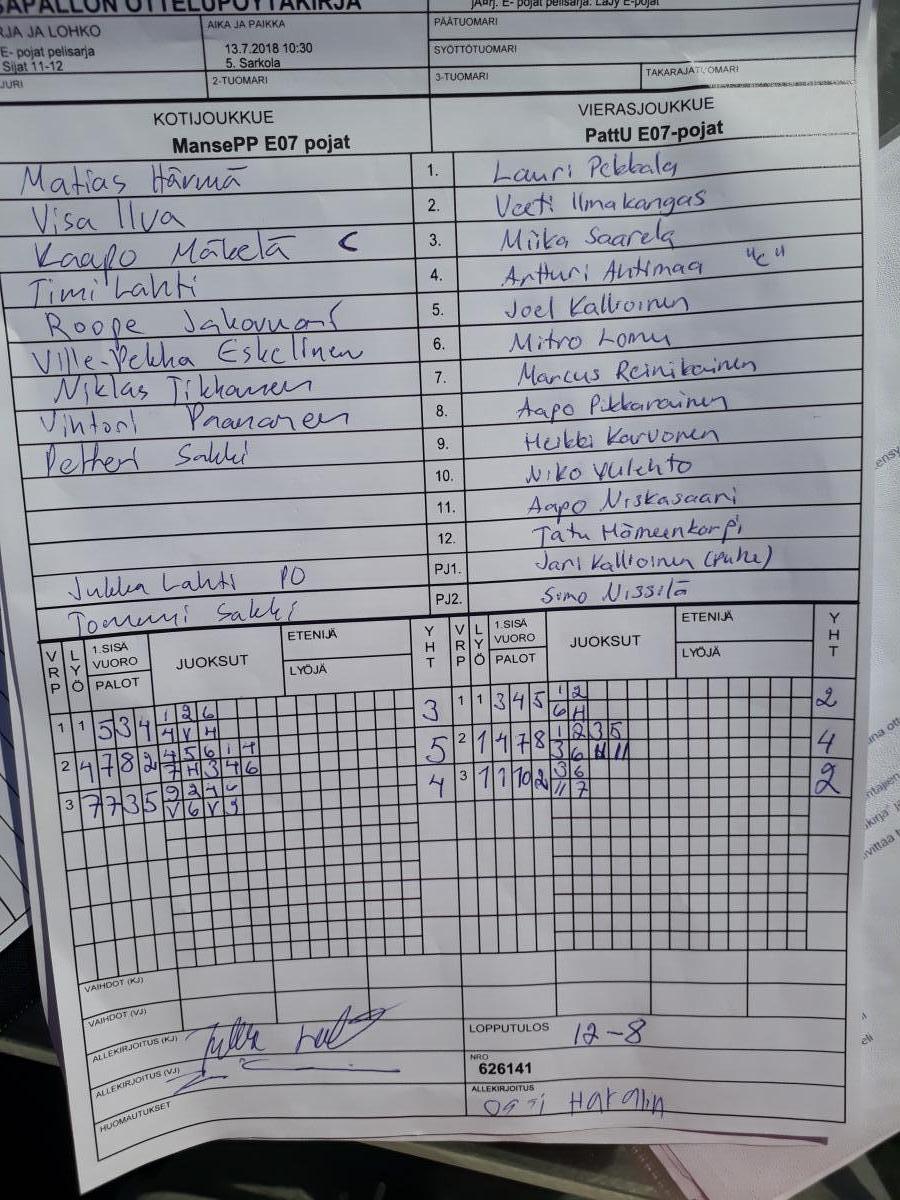 SAPALLON OTTELUPÖYTÄKIRJA
E- pojat pelisarja. LaJy E-pojat
RJA JA LOHKO
E- pojat pelisarja
Sijat 11-12
AIKA JA PAIKKA
13.7.2018 10:30
5. Sarkola
PÄÄTUOMARI
SYÖTTÖTUOMARI
JURI
2-TUOMARI
3-TUOMARI
TAKARAJATUOMARI
KOTIJOUKKUE
MansePP E07 pojat
VIERASJOUKKUE
PattU E07-pojat
Matias Härmä 1. Lauri Pekkala
Visa Ilva 2. Veeti Ilmakangas
Kaapo Mäkelä C 3. Miika Saarela
Timi Lahti 4. Artturi Ahtimaa "C"
Roope 5. Joel Kallioinen
Ville-Pekka Eskelinen 6. Mitro Lomu
Niklas Tikkanen 7. Marcus Reinikainen
Vihtori Paananen 8. Aapo Pikkarainen
Petteri Sakki 9. Heikki Karvonen
10. Niko Ylilehto
11. Aapo Niskasaari
12. Tatu Hämeenkorpi
Jukka Lahti PO PJ1. Jani Kallioinen (puhe)
Tommi Sakki PJ2. Simo Nissilä
VRP LYÖ 1.SISÄ VUORO PALOT JUOKSUT ETENIJÄ LYÖJÄ YHT VRP LYÖ 1.SISÄ VUORO PALOT JUOKSUT ETENIJÄ LYÖJÄ YHT
1 1 5 3 4 1 2 6 3 1 1 3 4 5 1 2 2
4 V H 6 H
2 4 7 8 2 4 5 6 1 4 5 2 1 4 7 8 1 2 3 5 4
7 H 3 4 6 3 6 H 11
3 7 7 3 5 4 3 1 1 10 2 3 6 2
V 6 V 9 11 7
VAIHDOT (KJ)
VAIHDOT (VJ)
ALLEKIRJOITUS (KJ) Jukka Lahti
LOPPUTULOS 12-8
ALLEKIRJOITUS (VJ)
NRO
626141
HUOMAUTUKSET
ALLEKIRJOITUS
Ossi Haralin